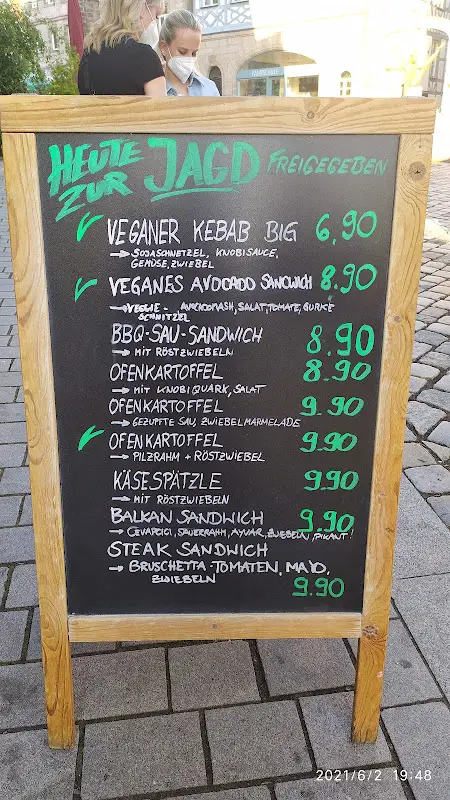 HEUTE ZUR JAGD FREIGEGEBEN
VEGANER KEBAB BIG 6,90
→ SOJASCHNETZEL, KNOBISAUCE,
GEMÜSE, ZWIEBEL
VEGANES AVOCADO SANDWICH 8.90
→ VEGGIE-, AVOCADOMASH, SALAT, TOMATE, GURKE
SCHNITZEL
BBQ-SAU-SANDWICH 8.90
→ MIT RÖSTZWIEBELN
OFENKARTOFFEL 8.90
→ MIT KNOBIQUARK, SALAT
OFENKARTOFFEL 9.90
→ GEZUPFTE SAU, ZWIEBELMARMELADE
OFENKARTOFFEL 9.90
→ PILZRAHM + RÖSTZWIEBEL
KÄSESPÄTZLE 9.90
→ MIT RÖSTZWIEBELN
BALKAN SANDWICH 9.90
→ CEVAPCICI, SAUERRAHM, AJVAR, ZWIEBELN, PIKANT!
STEAK SANDWICH
→ BRUSCHETTA-TOMATEN, MAYO,
ZWIEBELN 9.90
2021/6/2 19:48